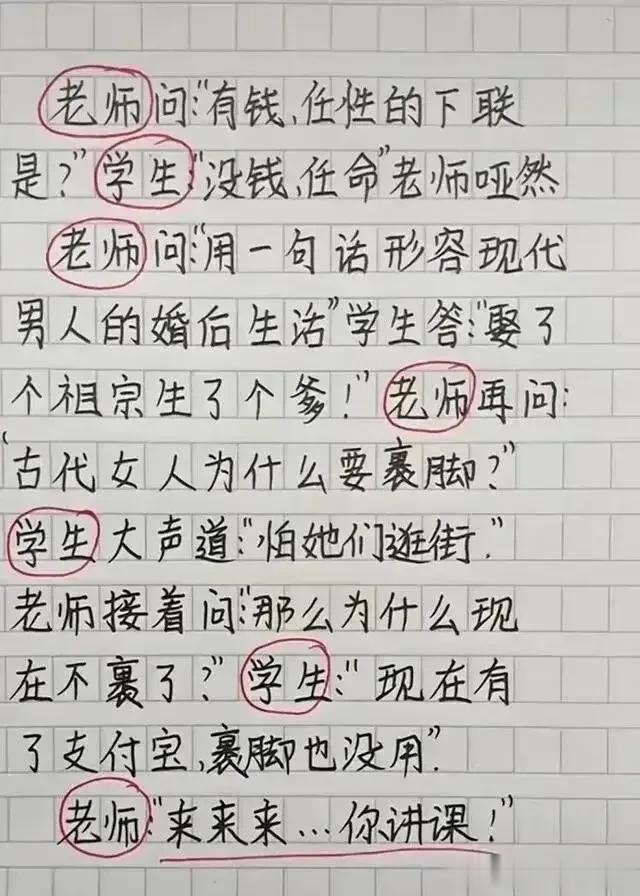 老师问:“有钱、任性的下联
是?”学生:“没钱、任命”老师哑然
老师问:“用一句话形容现代
男人的婚后生活”学生答:“娶了
个祖宗生了个爹!”老师再问:
“古代女人为什么要裹脚?”
学生大声道:“怕她们逛街.”
老师接着问:“那么为什么现
在不裹了?”学生:“现在有
了支付宝,裹脚也没用”.
老师:“来来来...你讲课!”